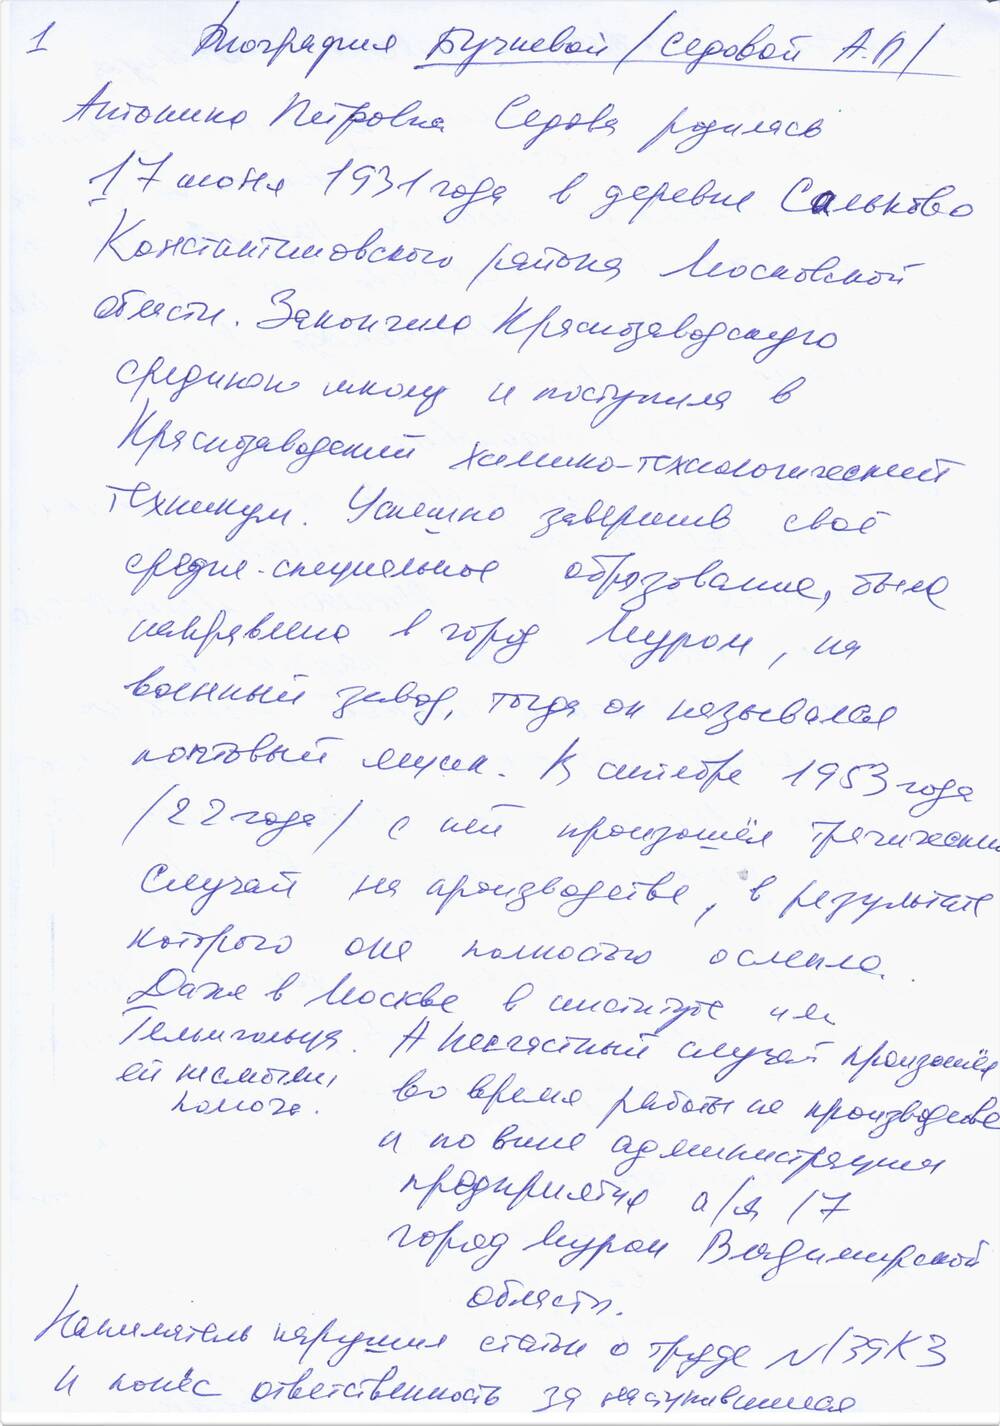 1 Биография Бучневой /Седовой А.П/
Антонина Петровна Седова родилась
17 июня 1931 года в деревне Сальково
Константиновского района Московской
области. Закончила Краснозаводскую
среднюю школу и поступила в
Краснозаводский химико-технологический
техникум. Успешно завершив своё
средне-специальное образование, была
направлена в город Муром, на
военный завод, тогда он назывался
почтовый ящик. В октябре 1953 года
/22 года/ с ней произошёл трагический
случай на производстве, в результате
которого она полностью ослепла.
Даже в Москве в институте им
Гельмгольца.
ей не смогли,
помочь.
А несчастный случай произошёл
во время работы на производстве
и по вине администрации
предприятия а/я 17
город Муром Владимирской
области.
нарушил статьи о труде N 139 КЗ
и понёс ответственность за наступившая